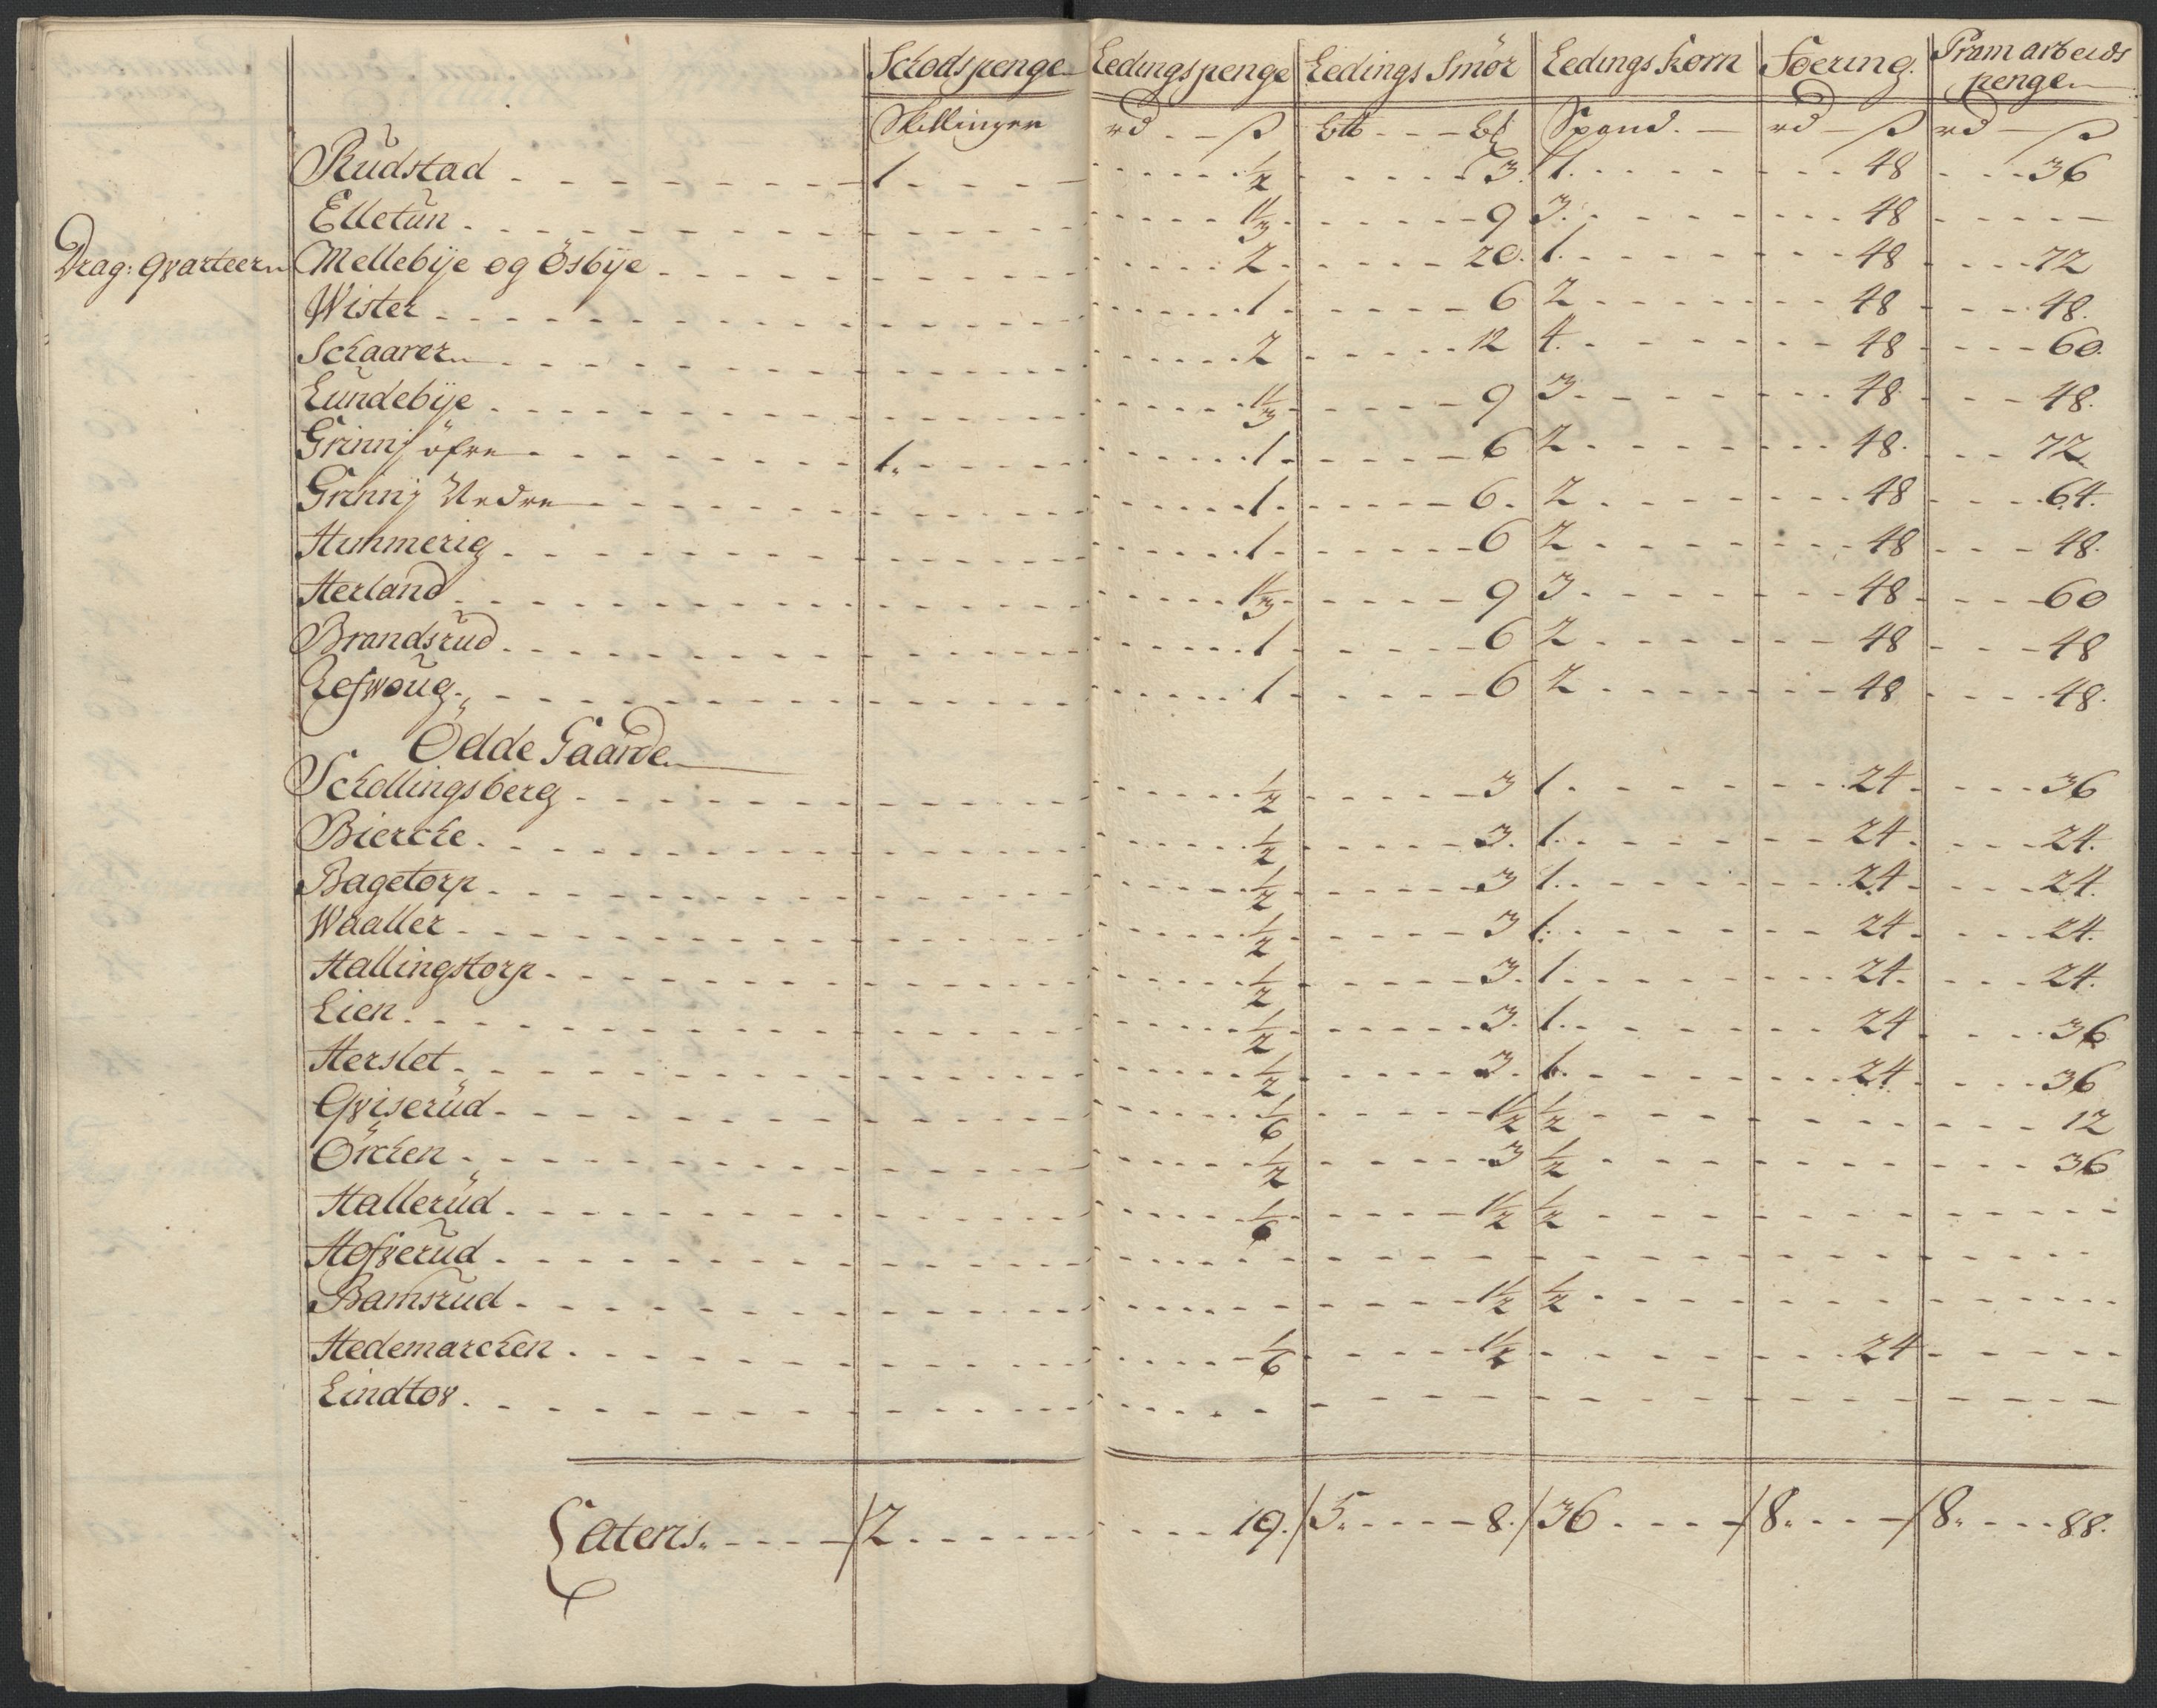 Schods penge Ledings penge Ledings Smör Ledings korn Foering. Pram arbeids
penge
Skillinger rd ß btb bl Spand. rd ß rd ß
Rudstad 1 1/2 3. 1. 48 36
Elletun 1 1/3 9 3. 48
Drag: qvarteer Mellebije og Ösbije 2 20. 1. 48 72
Wister 1 6 2 48 48.
Schaarer 2 12 4. 48 60.
Lundebije 1 1/3 9 3 48 48.
Grinnj öfre 1. 1 6 2 48. 72
Grinnj Nedre 1. 6. 2 48 64.
Hummerig 1 6 2 48 48.
Herland 1 1/3 9 3 48 60
Brandsrud 1 6 2 48 48
Refwoug 1 6 2 48 48.
Ödde Gaarde
Schollingsberg 1/2 3 1. 24 36
Biercke 1/2 3. 1. 24 24.
Bagetorp 1/2 3 1. 24 24.
Waaller 1/2 3 1. 24 24.
Hallingstorp 1/2 3. 1 24. 24.
Lien 1/2 3. 1. 24 36
Herslet 1/2 3. 1. 24 36
Qviserud 1/6 1 1/2 1/2 12
Örchen 1/2 3 1/2 36
Hallerud 1/6 1 1/2 1/2
Hofverud
Bamsrud 1 1/2 1/2
Hedemarchen 1/6 1 1/2 24
Lindtov
Lateris. 2 19. 5. 8. 36 8. 8. 88.